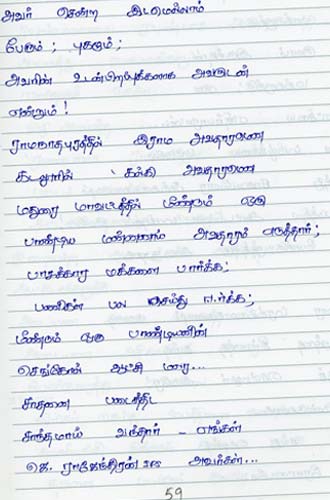 அவர் சென்ற இடமெல்லாம்
பேரும் ; புகழும் ;
அவரின் உடன்பிறப்புக்களாக அவருடன்
என்றும் !
ராமநாதபுரத்தில் இராம அவதாரமென
கடலூரில் கல்கி அவதாரமென
மதுரை மாவட்டத்தில் மீண்டும் ஒரு
பாண்டிய மன்னனாய் அவதாரம் எடுத்தார் ;
பாசக்கார மக்களை பார்க்க ;
பணிகள் பல செய்து
மீண்டும் ஒரு பாண்டியனின்
செங்கோல் ஆட்சி மலர ...
சாதனை படைத்திட
சாந்தமாய் வந்தார் - எங்கள்
கெ. ராஜேந்திரன் IAS அவர்கள் ...
59